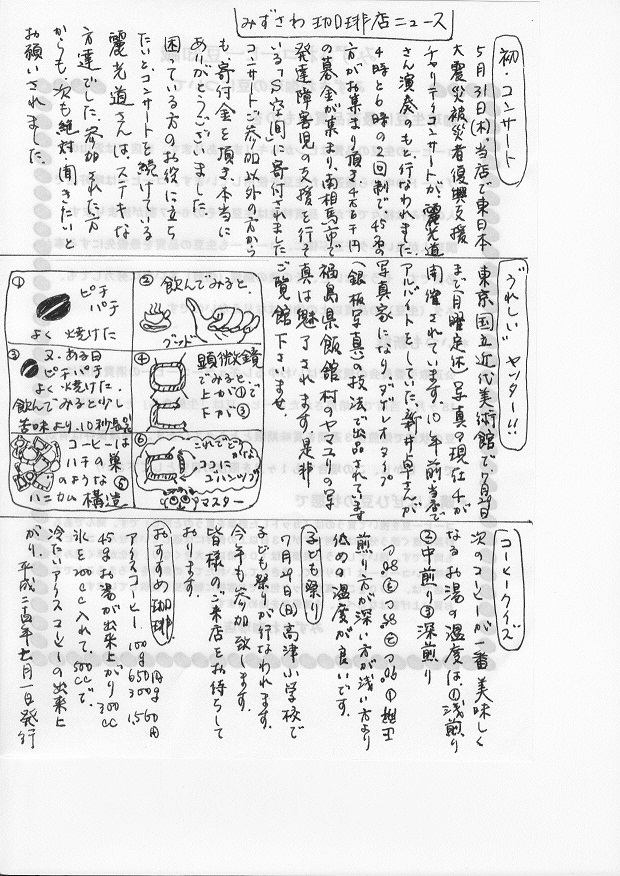 みずさわ珈琲店ニュース
初・コンサート
5月31日(木)当店で東日本
大震災被災者復興支援
チャリティコンサートが、麗光道
さん演奏のもと、行なわれました。
4時と6時の2回制で45名の
方がお集まり頂き、
の募金が集まり、南相馬市で
発達障害児の支援を行て
いる「S空間」に寄付されました。
コンサートご参加以外の方から
も寄付金を頂き、本当に
ありがとうございました。
困っている方のお役に立ち
たいとコンサートを続けている
麗光道さんは、ステキな
方達でした。参加された方
からも、次も絶対聞きたいと
お願いされました。
うれしい ヤッター!!
東京国立近代美術館で、7月29日
まで(月曜定休)写真の現在4が
開催されています。10年前当店で
アルバイトをしていた、新井卓さんが
写真家になり、ダゲレオタイプ
(銀板写真)の技法で出品されています
福島県飯館村のヤマユリの写
真は魅了されます。是非
ご覧館下さませ
① ピチ
パチ
よく焼けた
② 飲んでみると、
グッド
③ 又、ある日
ピチパチ
よく焼けた。
飲んでみると少し
苦味より、10秒
④ 顕微鏡
でみると
上が①で
下が③
⑤ コーヒーは
ハチの巣
のような
ハニカム構造
⑥ これでどうかな
ココに
ゴハンツブ
マスター
コーヒークイズ
次のコーヒーが一番美味しく
なるお湯の温度は、①浅煎り
②中煎り③深煎り
煎り方が深い方が浅い方より
低めの温度が良いです。
子ども祭り
7月29日(日)高津小学校で
子ども祭りが行なわれます。
今年も参加致します。
皆様のご来店をお待ちして
おります
おすすめ珈琲
アイスコーヒー 100g 650円
300g 1,560円
45gお湯が出来上がり300cc
氷を200cc入れて、500ccで、
冷たいアイスコーヒーの出来上
がり、平成二四年七月一日発行